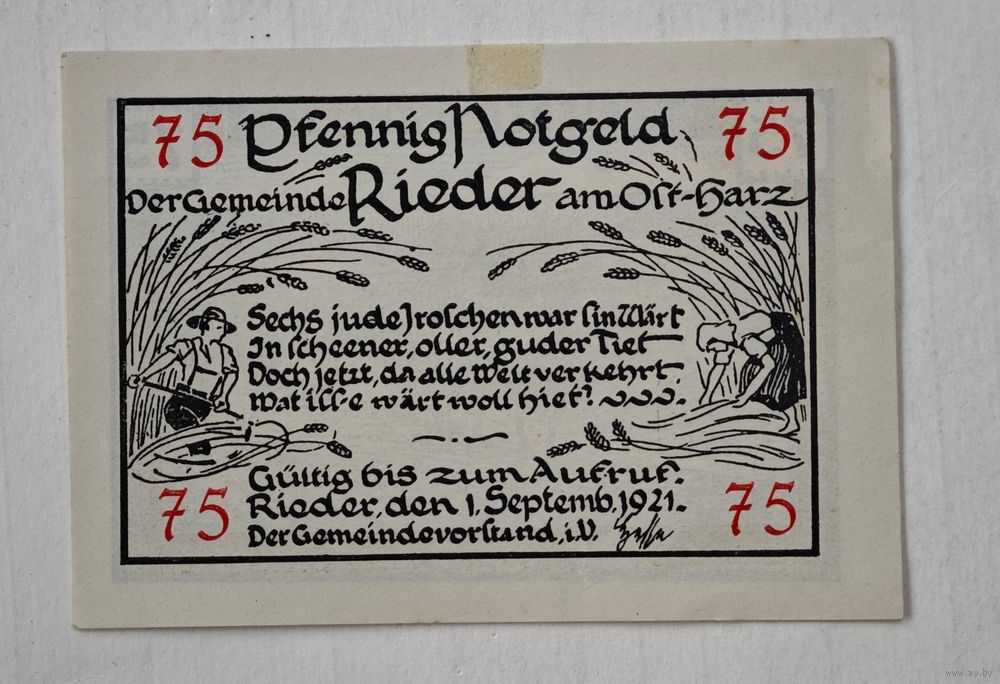 75 Pfennig Notgeld 75
Der Gemeinde Rieder am Ost-Harz
Sechs jude Jroschen war sin Wärt
In scheener, oller, guder Tiet
Doch jetzt, da alle Welt verkehrt,
Wat iss-e wärt woll hiet?
Gültig bis zum Aufruf.
75 Rieder, den 1. Septemb. 1921. 75
Der Gemeindevorstand, i.V. Hesse
www.ay.by